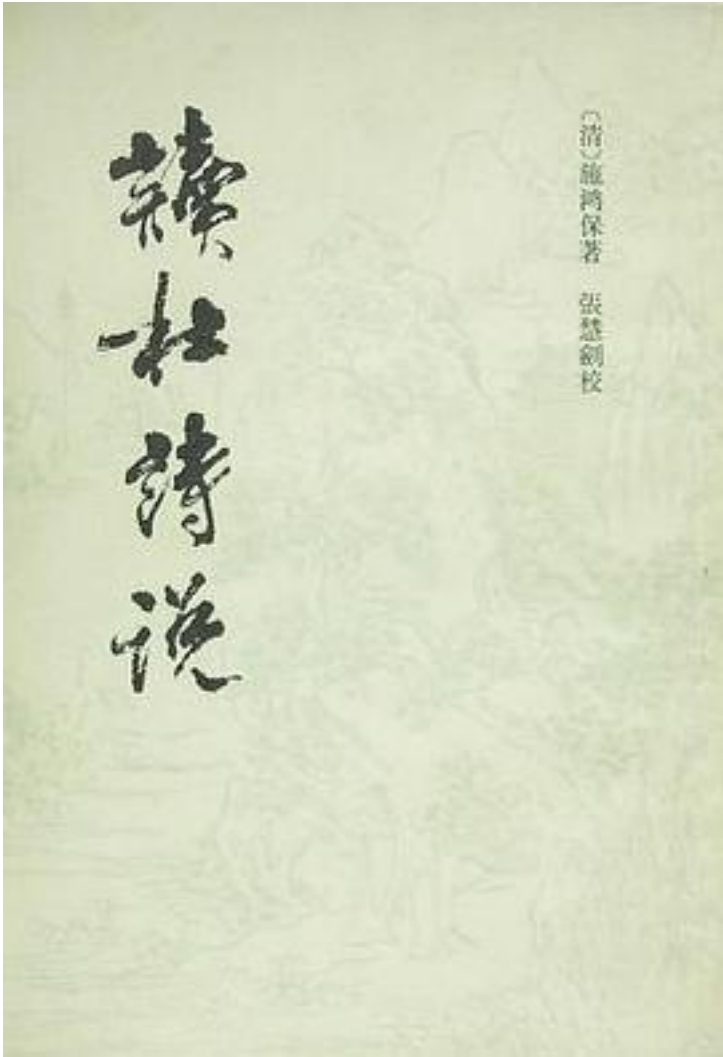 〔清〕施鴻保著 張慧劍校
讀杜詩說